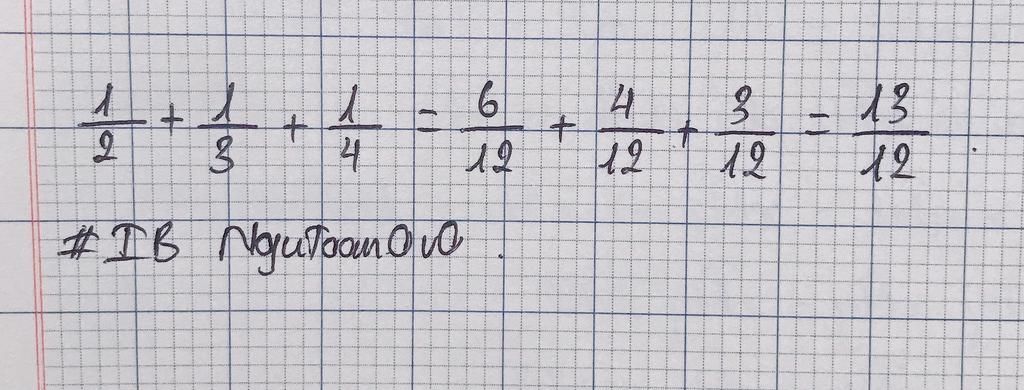 1/2 + 1/3 + 1/4 = 6/12 + 4/12 + 3/12 = 13/12 .
# IB NguToanOvO .